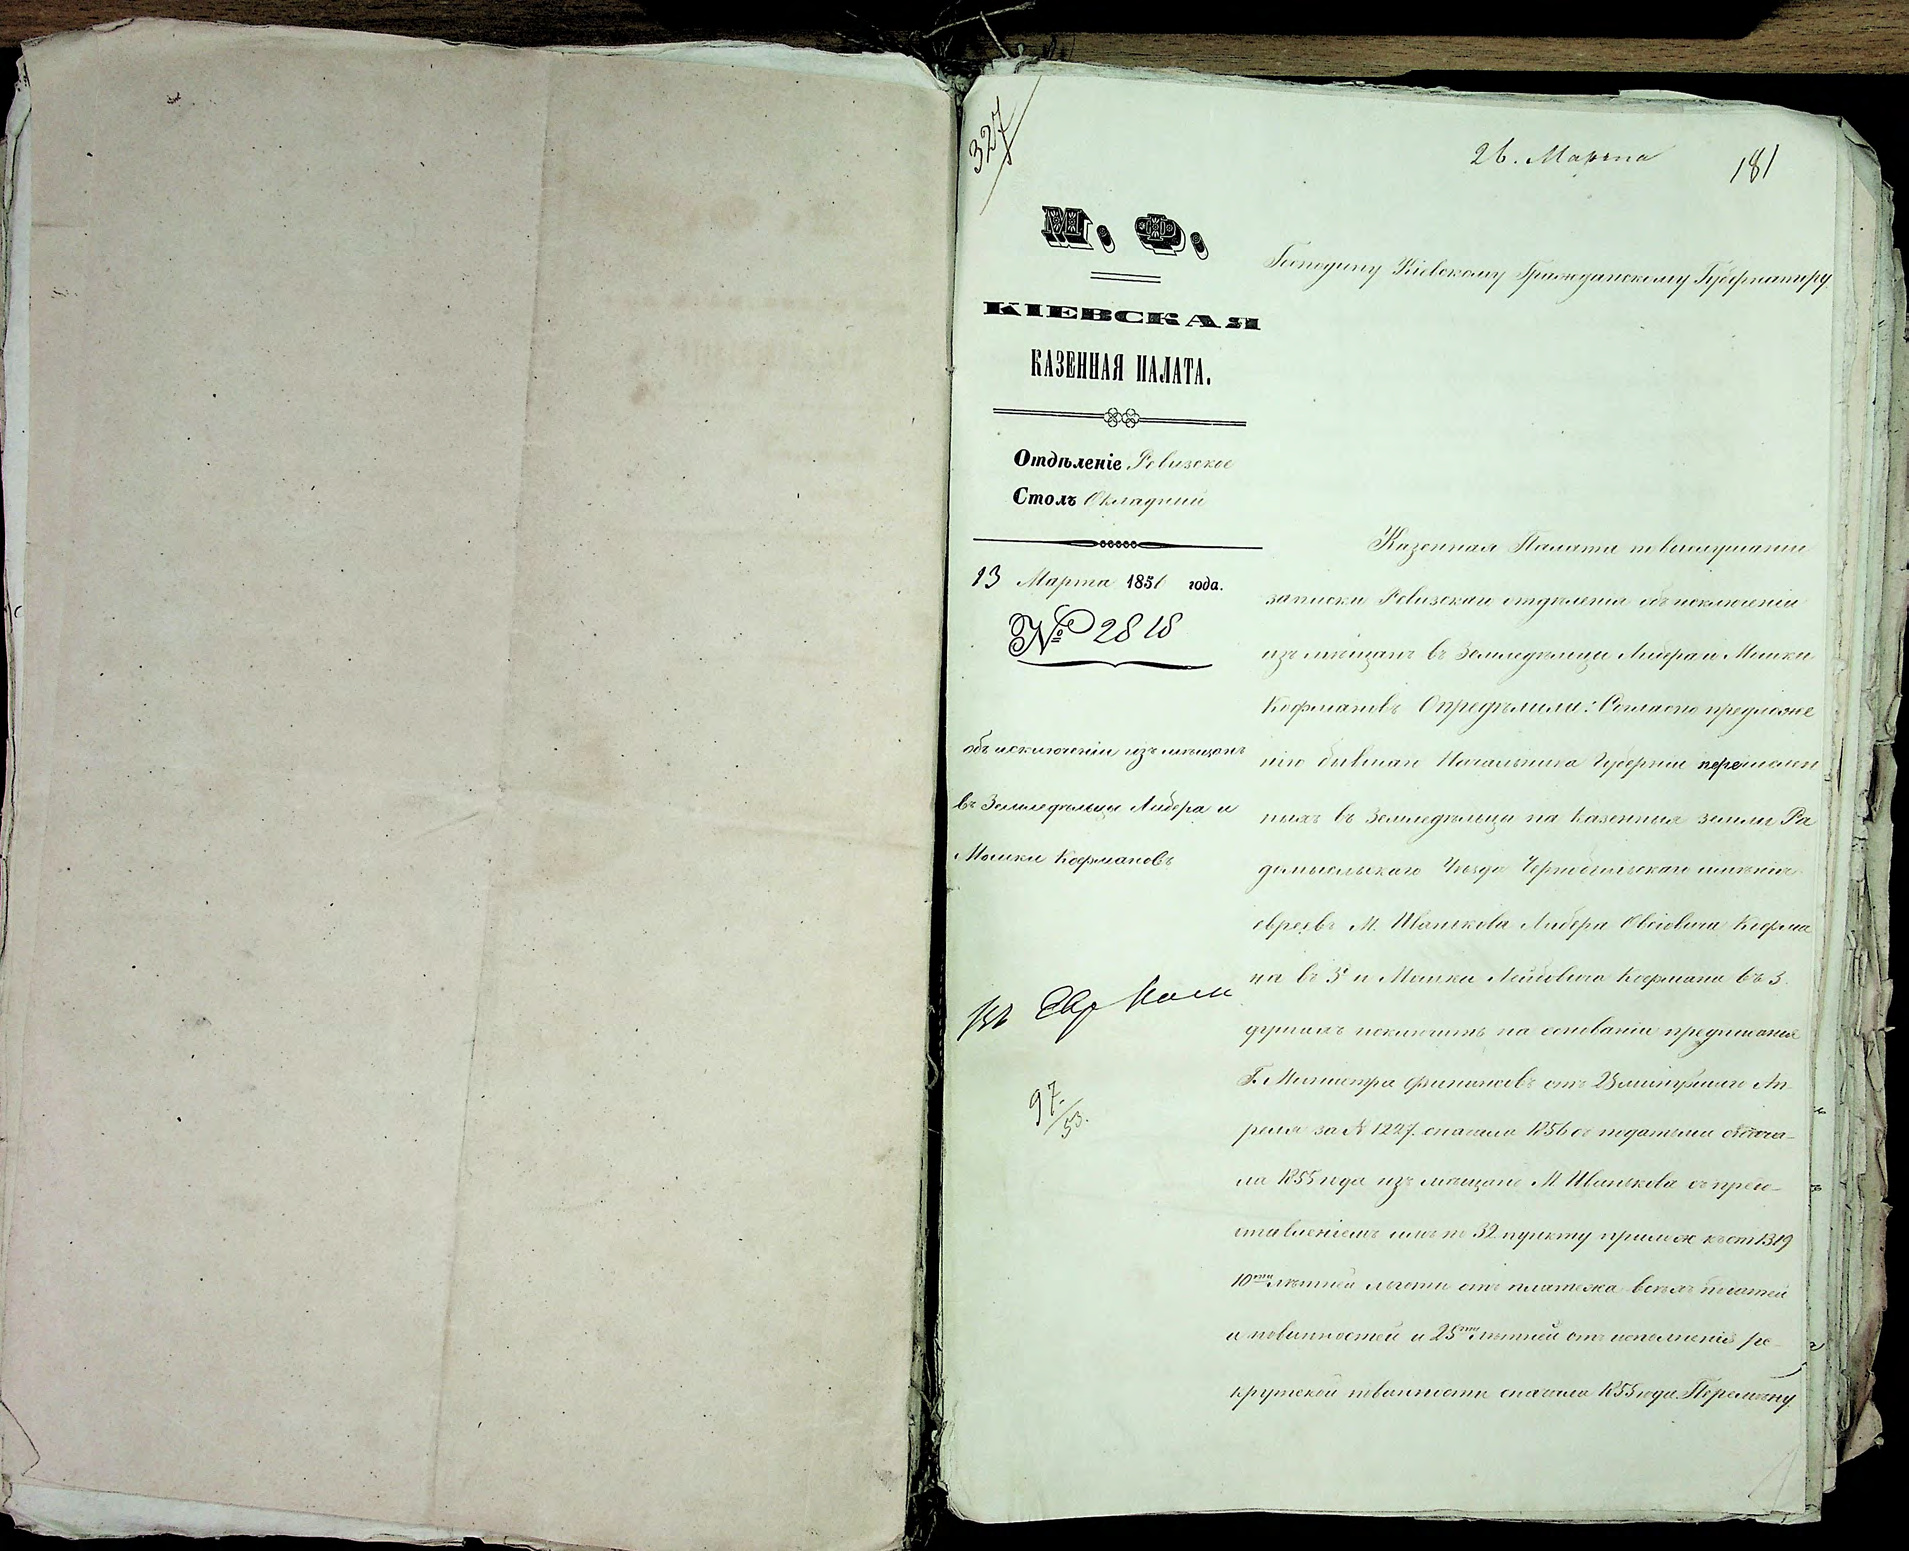 327
26. Марта
181
М. Ф.
КІЕВСКАЯ
КАЗЕННАЯ ПАЛАТА.
Отдѣленіе Ревизское
Столъ Окладный
13 Марта 1851 года.
№ 2818
объ исключеніи изъ мѣщанъ
въ Земледѣльцы Либера и
Мошки Кофмановъ
Евр
97/53.
Господину Кіевскому Гражданскому Губернатору
Казенная Палата по выслушаніи
записки Ревизскаго отдѣленія объ исключеніи
изъ мѣщанъ въ Земледѣльцы Либера и Мошки
Кофмановъ Опредѣлили: Согласно предложе
нію бывшаго Начальника Губерніи перечислен
ныхъ въ Земледѣльцы на казенныя земли Ра
домысльскаго Уѣзда Чернобыльскаго имѣнія
евреевъ М. Иванкова Либера Овсіовича Кофма
на въ 5 и Мошки Лейбовича Кофмана въ 3
душахъ исключить на основаніи предписанія
Г. Министра Финансовъ отъ минувшаго Ап
реля за № 1227. сначала 1856 съ податьми сънача
ла 1855 года изъ мѣщанъ М Иванкова съ предо
ставленіемъ имъ по 32 пункту прилож къ ст 1319
10ти лѣтней льготы отъ платежа всѣхъ податей
и повинностей и 25ти лѣтней отъ исполненія ре
крутской повинности сначала 1855 года.